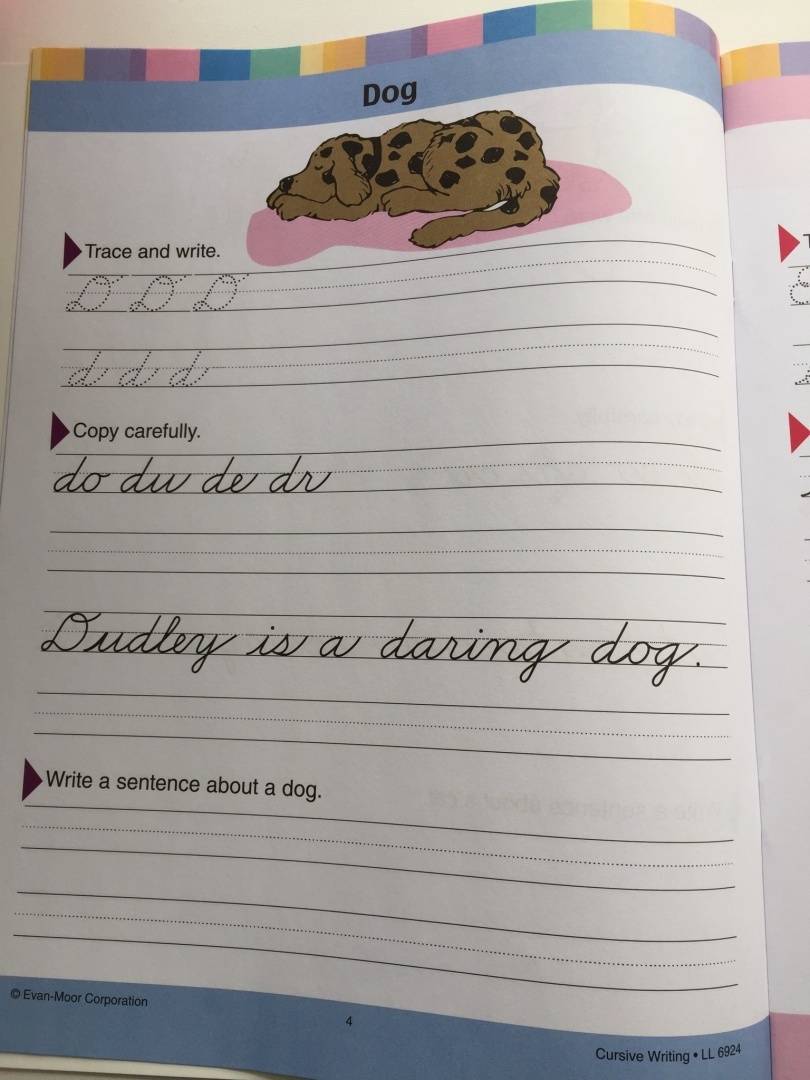 Dog
Trace and write.
D D D
d d d
Copy carefully.
do du de dr
Dudley is a daring dog.
Write a sentence about a dog.
© Evan-Moor Corporation
4
Cursive Writing • LL 6924